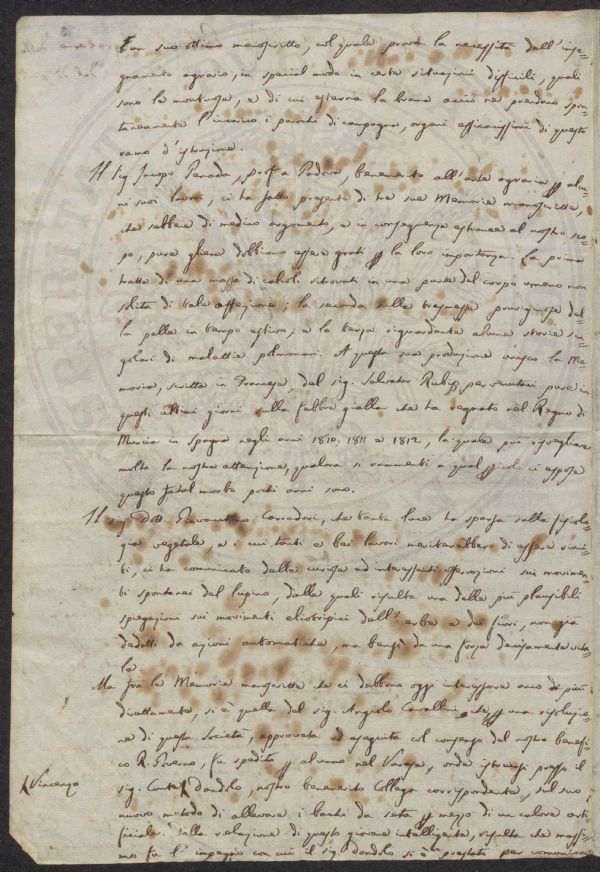 Con suo ottimo manoscritto, col quale prova la necessità dell'inse-
gnamento agrario, in special modo in certe situazioni difficili, quali
sono le montuose, e di cui esterna la brama acciò ne prendano spon-
taneamente l'incarico i parochi di campagna, organi efficacissimi di questo
ramo d'istruzione.
Il sig. Jacopo Penada, prof. a Padova, benemerito all'arte agraria p alcu-
ni suoi lavori, ci ha fatto presenti di tre sue Memorie manoscritte,
che sebbene di medico argomento, e in conseguenza estranee al nostro sco-
po, pure gliene dobbiamo essere grati p la loro importanza. La prima
tratta di una massa di calcoli ritrovati in una parte del corpo umano non
solita di tale affezione; la seconda sulla pruriginosa del-
la pelle in tempo estivo; e la terza riguardante alcune storie sin-
golari di malattie polmonari. A questa sua produzione unisco la Me-
moria, scritta in Francese, del sig. Salvator, pervenutaci pure in
questi ultimi giorni sulla febbre gialla che ha regnato nel Regno di
Murcia in spagna negli anni 1810, 1811 e 1812, la quale può risvegliare
molto la nostra attenzione, qualora si rammenti a qual pericolo ci espose
questo fatal morbo pochi anni sono.
Il sig. Dott. Carradori, che tanta luce ha sparsa sulla fisiolo-
gia vegetale, e i cui tanti e bei lavori meriterebbero di essere riuni-
ti, ci ha comunicato delle curiose ed interessanti osservazioni sui movimen-
ti spontanei del lupino, dalle quali risulta una delle più plausibili
spiegazioni sui movimenti eliotropici dell'erbe e dei fiori, non già
dedotti da azioni automatiche, ma bensì da una forza decisamente vita-
le.
Ma fra le Memorie manoscritte che ci debbono oggi interessare anco di più
direttamente, si è quella del sig. Angiolo Cavallini, che p una risoluzio-
ne di questa società, approvata ed eseguita col consenso del nostro benefi-
co R. Governo, fu spedito p alunno nel Varese, onde istruirsi presso il
sig. Conte / Dandolo, nostro benemerito Collega corrispondente, sul suo
/ Vincenzo
nuovo metodo di allevare i bachi da seta p mezzo di un calore arti-
ficiale. Dalla relazione di questo giovane intelligente, risulta che massi-
mo fu l'impegno con cui il sig. Dandolo si è prestato per comunica-